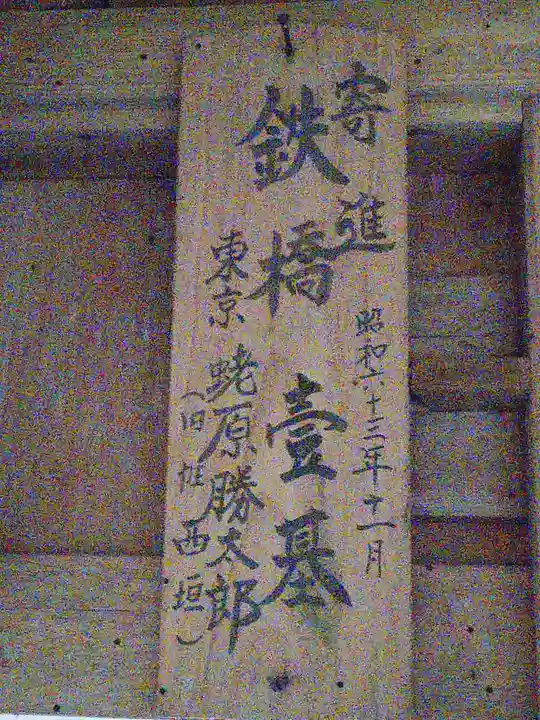 寄進
昭和六十三年十一月
鉄橋壹基
東京
蛯原勝太郎
(旧姓 西垣)